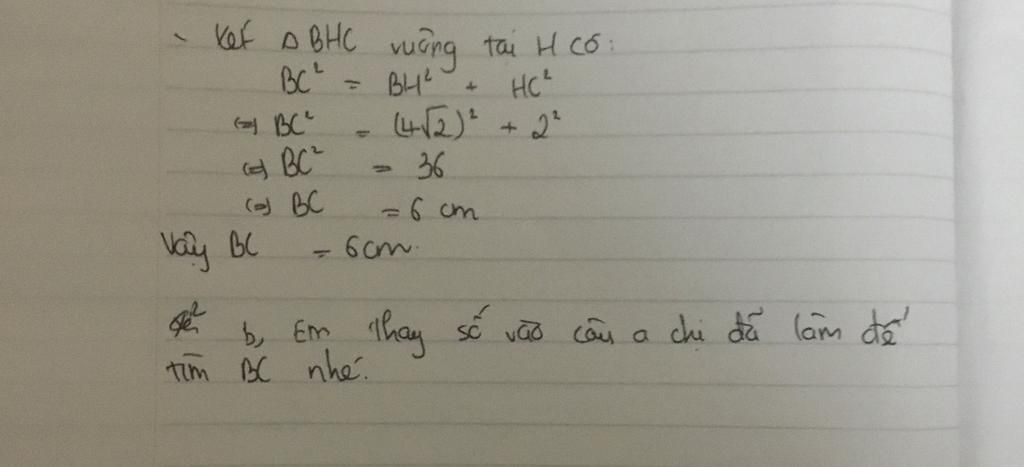 - Xét Δ BHC vuông tại H có:
BC² = BH² + HC²
(=) BC² = (4√2)² + 2²
(=) BC² = 36
(=) BC = 6 cm
Vậy BC = 6cm.
b, Em thay số vào câu a chị đã làm để
tìm BC nhé.